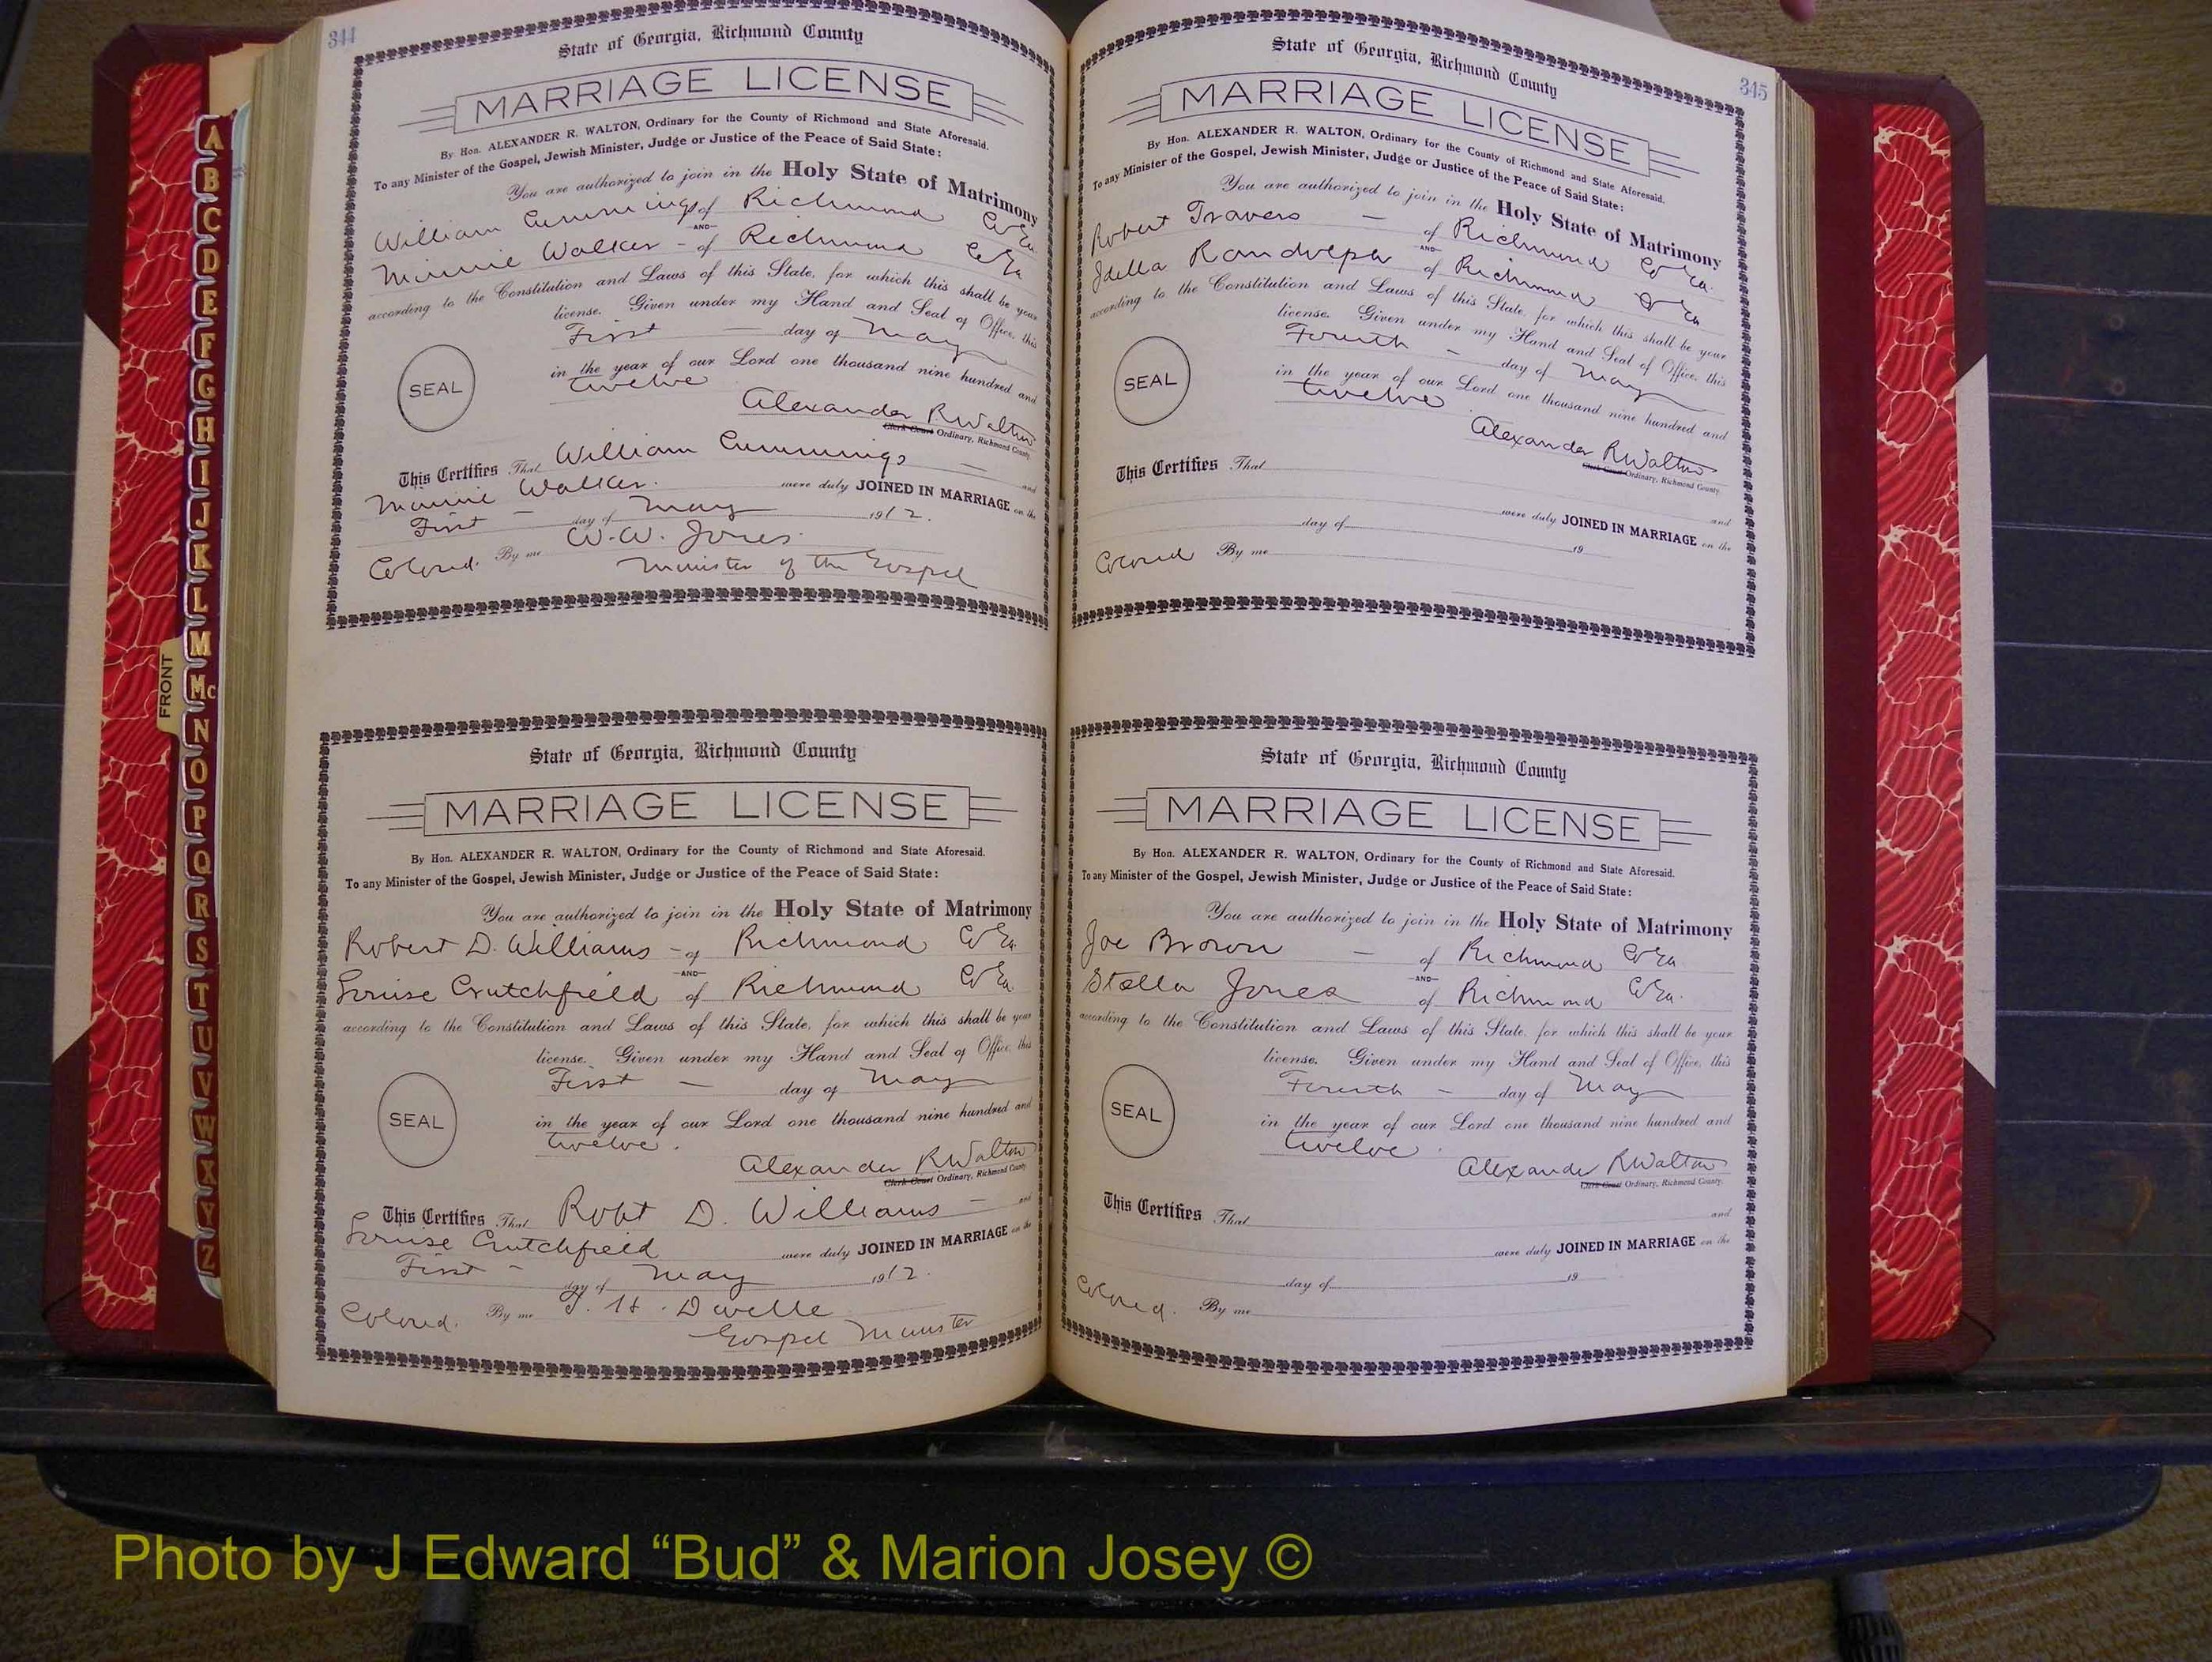 344
State of Georgia, Richmond County
MARRIAGE LICENSE
By Hon. ALEXANDER R. WALTON, Ordinary for the County of Richmond and State Aforesaid.
To any Minister of the Gospel, Jewish Minister, Judge or Justice of the Peace of Said State:
You are authorized to join in the Holy State of Matrimony
William Cummings of Richmond Co Ga.
AND
Minnie Walker - of Richmond Co Ga
according to the Constitution and Laws of this State, for which this shall be your
license. Given under my Hand and Seal of Office, this
First — day of May
in the year of our Lord one thousand nine hundred and
twelve
SEAL
Alexander R Walton
Clerk Court Ordinary, Richmond County
This Certifies That William Cummings — and
Minnie Walker. were duly JOINED IN MARRIAGE on the
First - day of May 1912.
Colored. By me W. W. Jones.
Minister of the Gospel
State of Georgia, Richmond County
MARRIAGE LICENSE
By Hon. ALEXANDER R. WALTON, Ordinary for the County of Richmond and State Aforesaid.
To any Minister of the Gospel, Jewish Minister, Judge or Justice of the Peace of Said State:
You are authorized to join in the Holy State of Matrimony
Robert D. Williams - of Richmond Co Ga.
AND
Louise Crutchfield of Richmond Co Ga
according to the Constitution and Laws of this State, for which this shall be your
license. Given under my Hand and Seal of Office, this
First — day of May
in the year of our Lord one thousand nine hundred and
twelve.
SEAL
Alexander R Walton
Clerk Court Ordinary, Richmond County
This Certifies That Robt D. Williams — and
Louise Crutchfield were duly JOINED IN MARRIAGE on the
First - day of May 1912.
Colored. By me T. H. Dwelle
Gospel Minister
345
State of Georgia, Richmond County
MARRIAGE LICENSE
By Hon. ALEXANDER R. WALTON, Ordinary for the County of Richmond and State Aforesaid.
To any Minister of the Gospel, Jewish Minister, Judge or Justice of the Peace of Said State:
You are authorized to join in the Holy State of Matrimony
Robert Travers — of Richmond Co Ga.
AND
Idella of Richmond Co Ga
according to the Constitution and Laws of this State, for which this shall be your
license. Given under my Hand and Seal of Office, this
Fourth - day of May
in the year of our Lord one thousand nine hundred and
twelve
SEAL
Alexander R Walton
Clerk Court Ordinary, Richmond County
This Certifies That and
were duly JOINED IN MARRIAGE on the
day of 19
Colored By me
State of Georgia, Richmond County
MARRIAGE LICENSE
By Hon. ALEXANDER R. WALTON, Ordinary for the County of Richmond and State Aforesaid.
To any Minister of the Gospel, Jewish Minister, Judge or Justice of the Peace of Said State:
You are authorized to join in the Holy State of Matrimony
Joe Brown — of Richmond Co Ga
AND
Stella Jones of Richmond Co Ga.
according to the Constitution and Laws of this State, for which this shall be your
license. Given under my Hand and Seal of Office, this
Fourth - day of May
in the year of our Lord one thousand nine hundred and
twelve.
SEAL
Alexander R Walton
Clerk Court Ordinary, Richmond County.
This Certifies That and
were duly JOINED IN MARRIAGE on the
day of 19
Colored. By me
FRONT
A
B
C
D
E
F
G
H
I
J
K
L
M
Mc
N
O
P
Q
R
S
T
U
V
W
X
Y
Z
Photo by J Edward “Bud” & Marion Josey ©